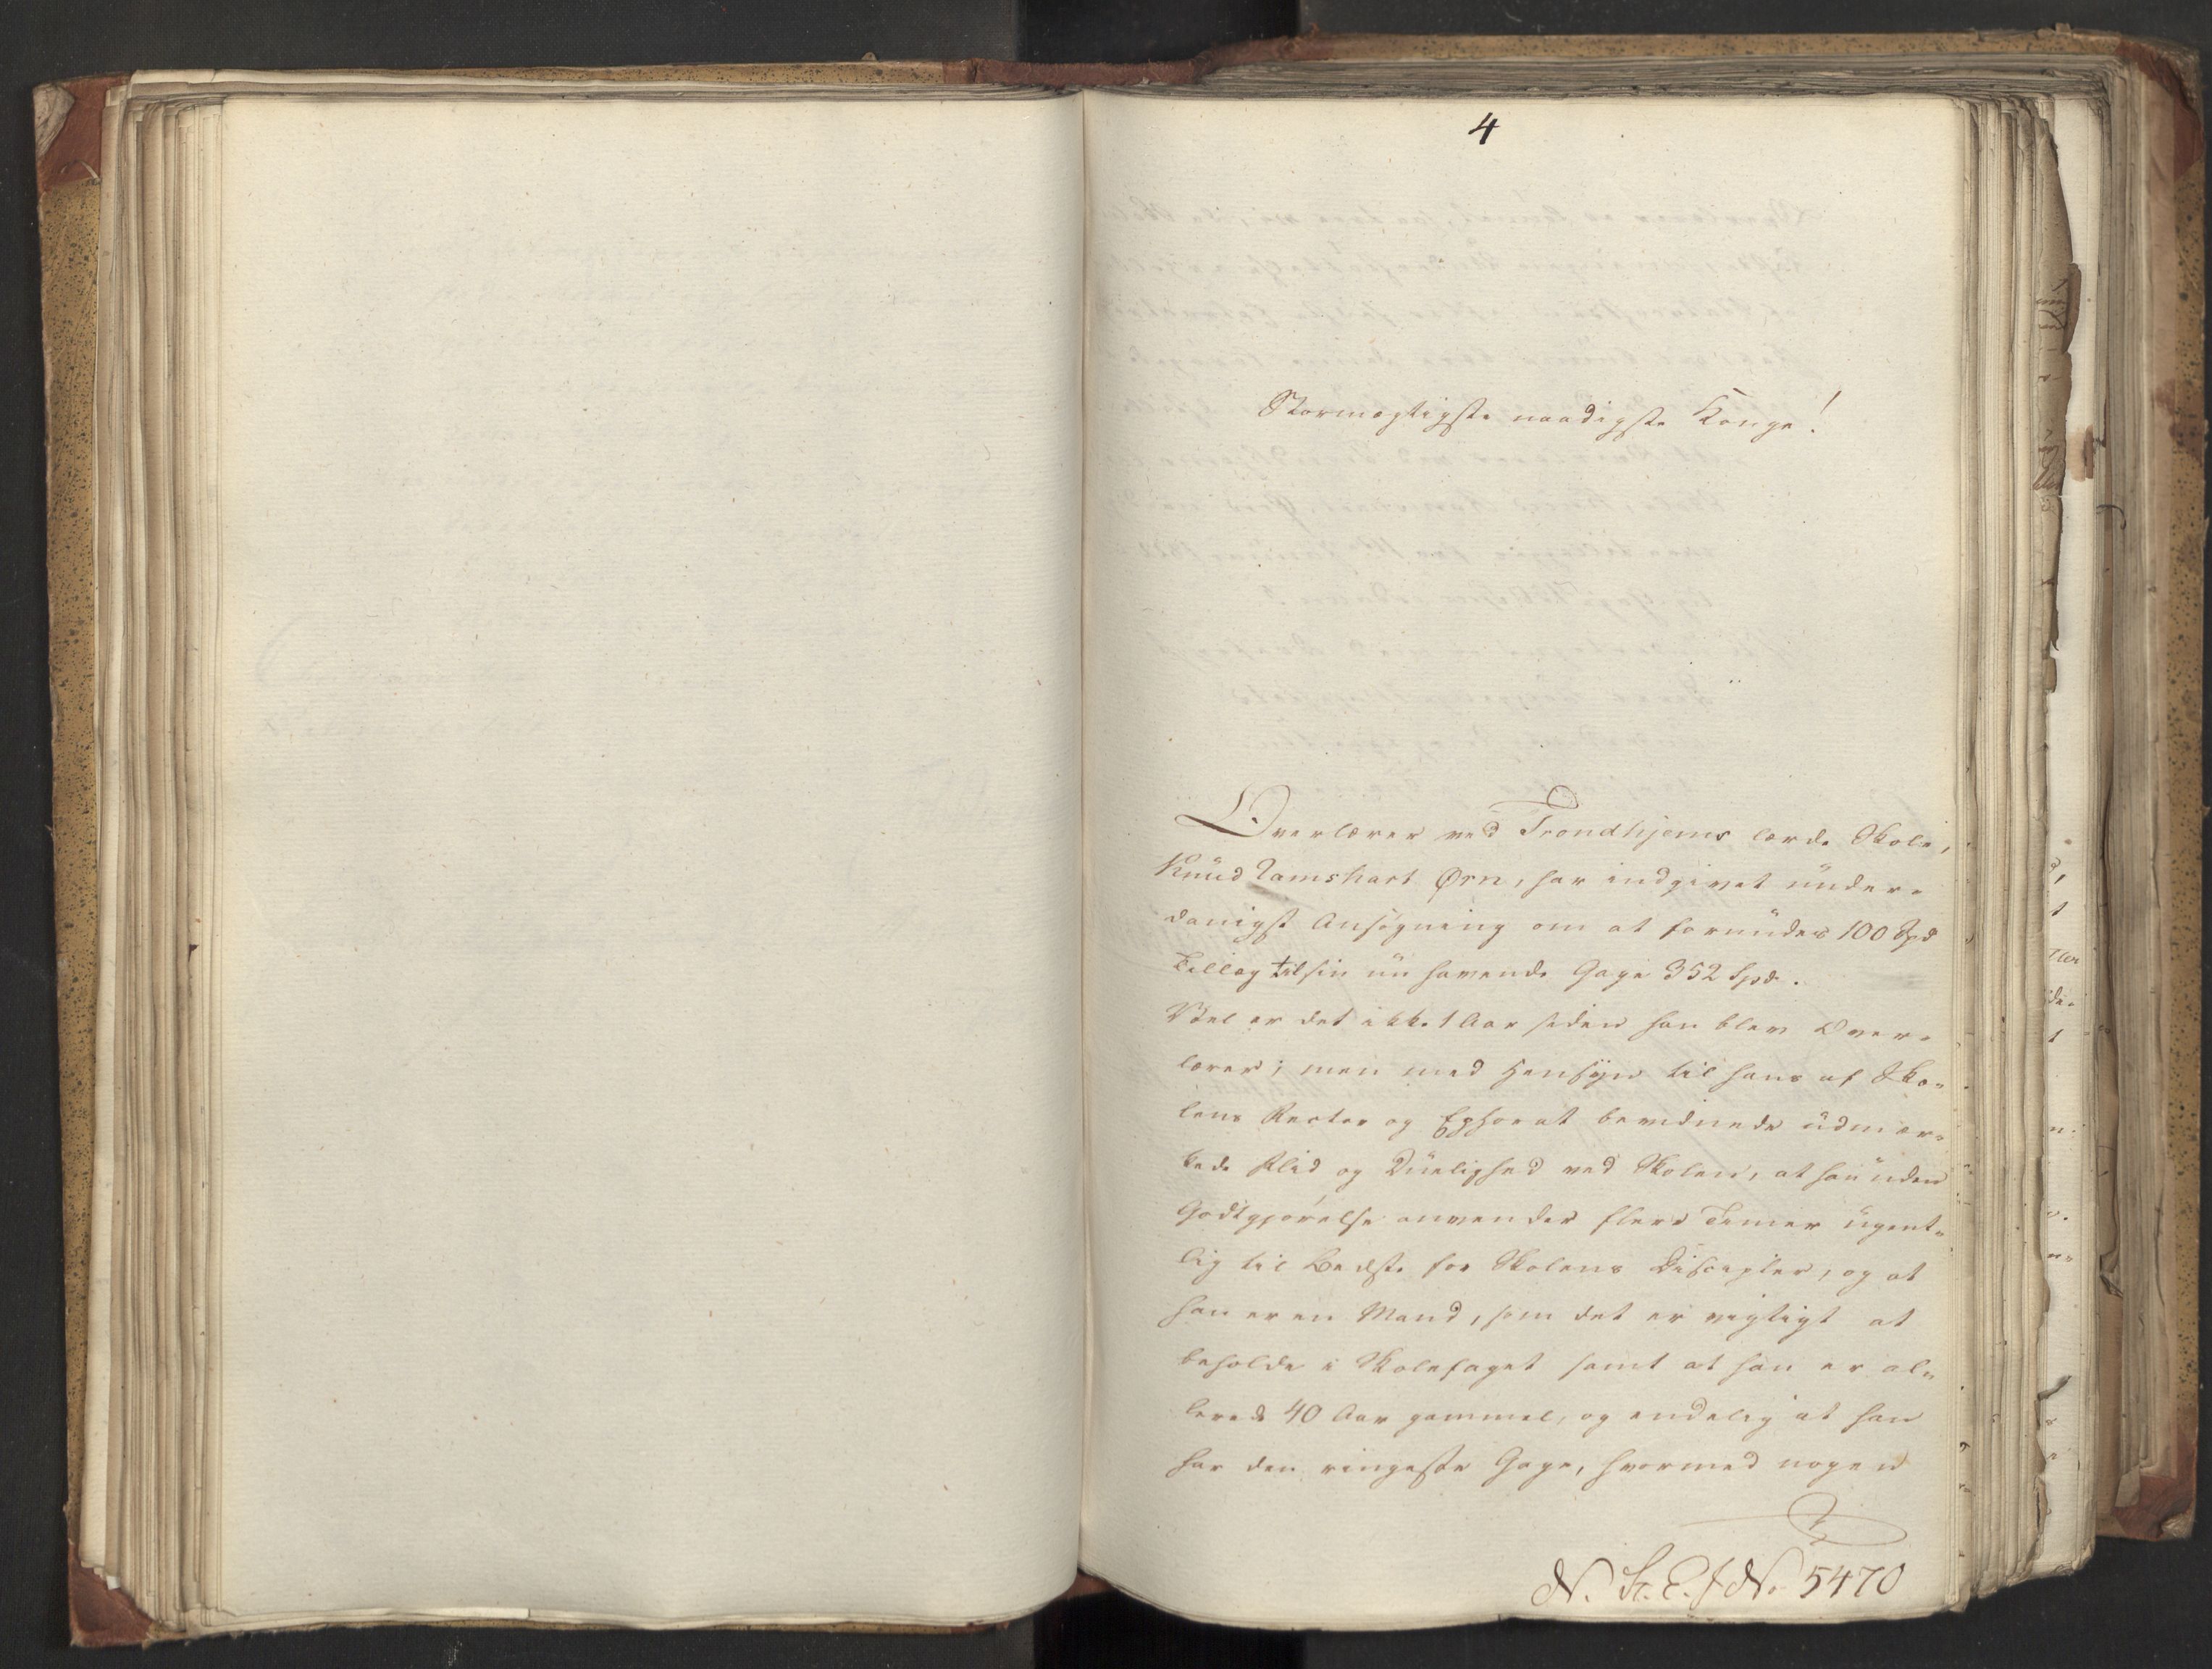 4
Stormægtigste naadigste Konge!
Overlærer ved Trondhjems lærde Skole,
Knud Ramshart Ørn, har indgivet under-
danigst Ansøgning om at forundes 100 Spd
Tillæg til sin nu havende Gage 352 Spd.
Vel er det ikke 1 Aar siden han blev Over-
lærer; men med Hensyn til hans af Sko-
lens Rector og Ephorat bevidnede udmær-
kede Flid og Duelighed ved Skolen, at han uden
Godtgjørelse anvender flere Timer ugent-
lig til Bedste for Skolens Disciple, og at
han er en Mand, som det er vigtigt at
beholde i Skolefaget samt at han er al-
lerede 40 Aar gammel, og endelig at han
har den ringeste Gage, hvormed nogen
N. St. E. J No 5470